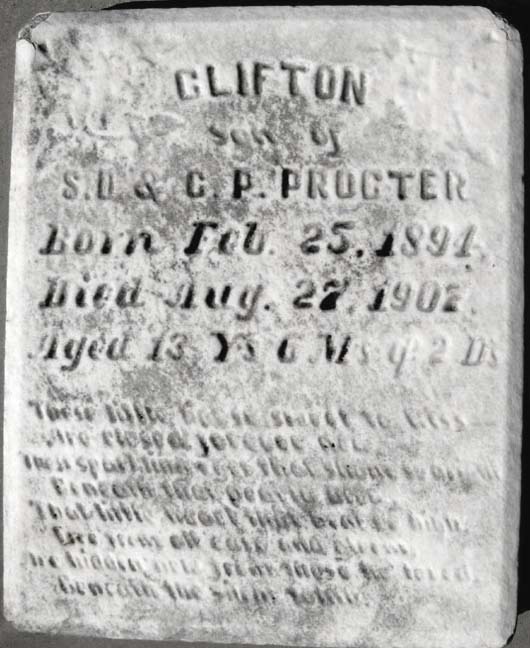 CLIFTON
Son of
S.D & C. P. PROCTER
Born Feb. 25, 1894.
Died Aug. 27, 1907.
Aged 13 Ys 6 Ms & 2 Ds
little sweet to kiss
Are closed forever
sparkling eyes that shone so bright
Beneath that pearly brow
That little heart that beat so high
Free from all care and gloom,
hidden now from those he loved
Beneath the silent tomb.